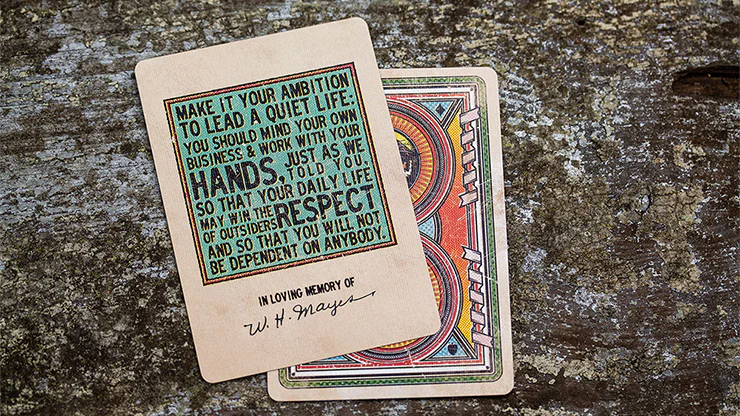 MAKE IT YOUR AMBITION
TO LEAD A QUIET LIFE:
YOU SHOULD MIND YOUR OWN
BUSINESS & WORK WITH YOUR
HANDS, JUST AS WE
TOLD YOU,
SO THAT YOUR DAILY LIFE
MAY WIN THE
OF OUTSIDERS RESPECT
AND SO THAT YOU WILL NOT
BE DEPENDENT ON ANYBODY.
IN LOVING MEMORY OF
W. H. Mayes